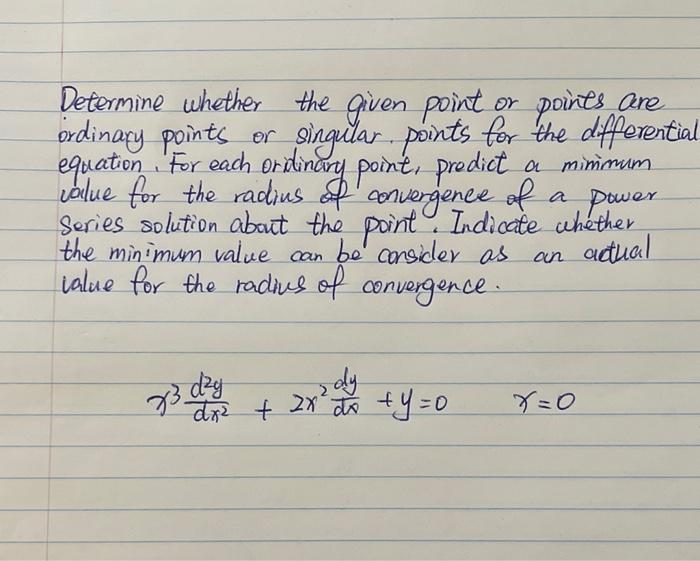 Determine whether the given point or points are
ordinary points or singular points for the differential
equation. For each oridinary point, predict a minimum
value for the radius of convergence of a power
series solution about the point. Indicate whether
the minimum value can be consider as an actual
value for the radius of convergence.
x³ d²y/dx² + 2x² dy/dx + y = 0 x = 0